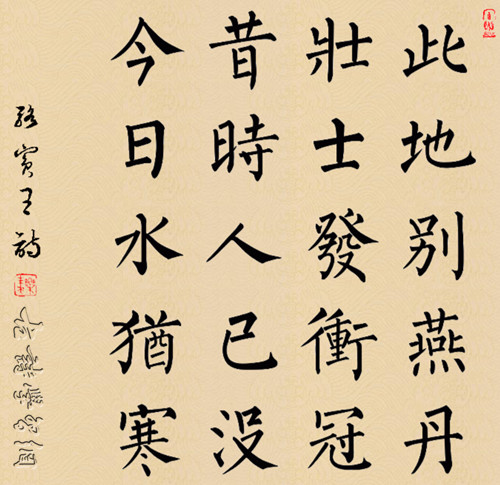 此地别燕丹
壯士發衝冠
昔時人已没
今日水猶寒
駱賓王詩